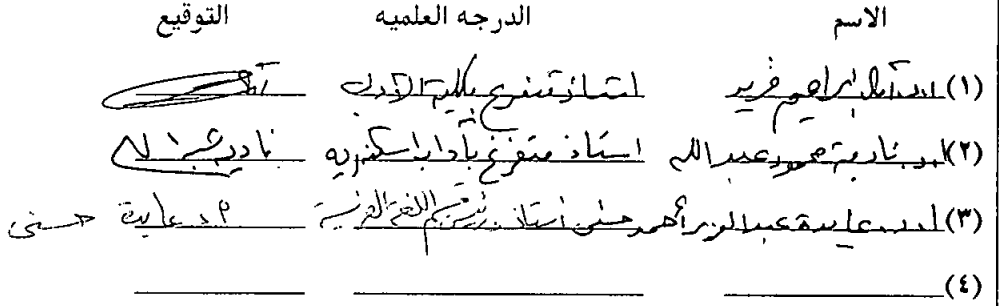 الاسم الدرجه العلميه التوقيع
(١) ا.د. آمال ابراهيم فريد استاذ متفرغ بكلية الآداب
(٢) ا.د. نادية محمود عبد الله استاذ متفرغ بآداب اسكندرية نادية عبد الله
(٣) ا.د. عايدة عبد العزيز أحمد حسنى استاذ ورئيس قسم اللغة الفرنسية ا.د. عايدة حسنى
(٤)